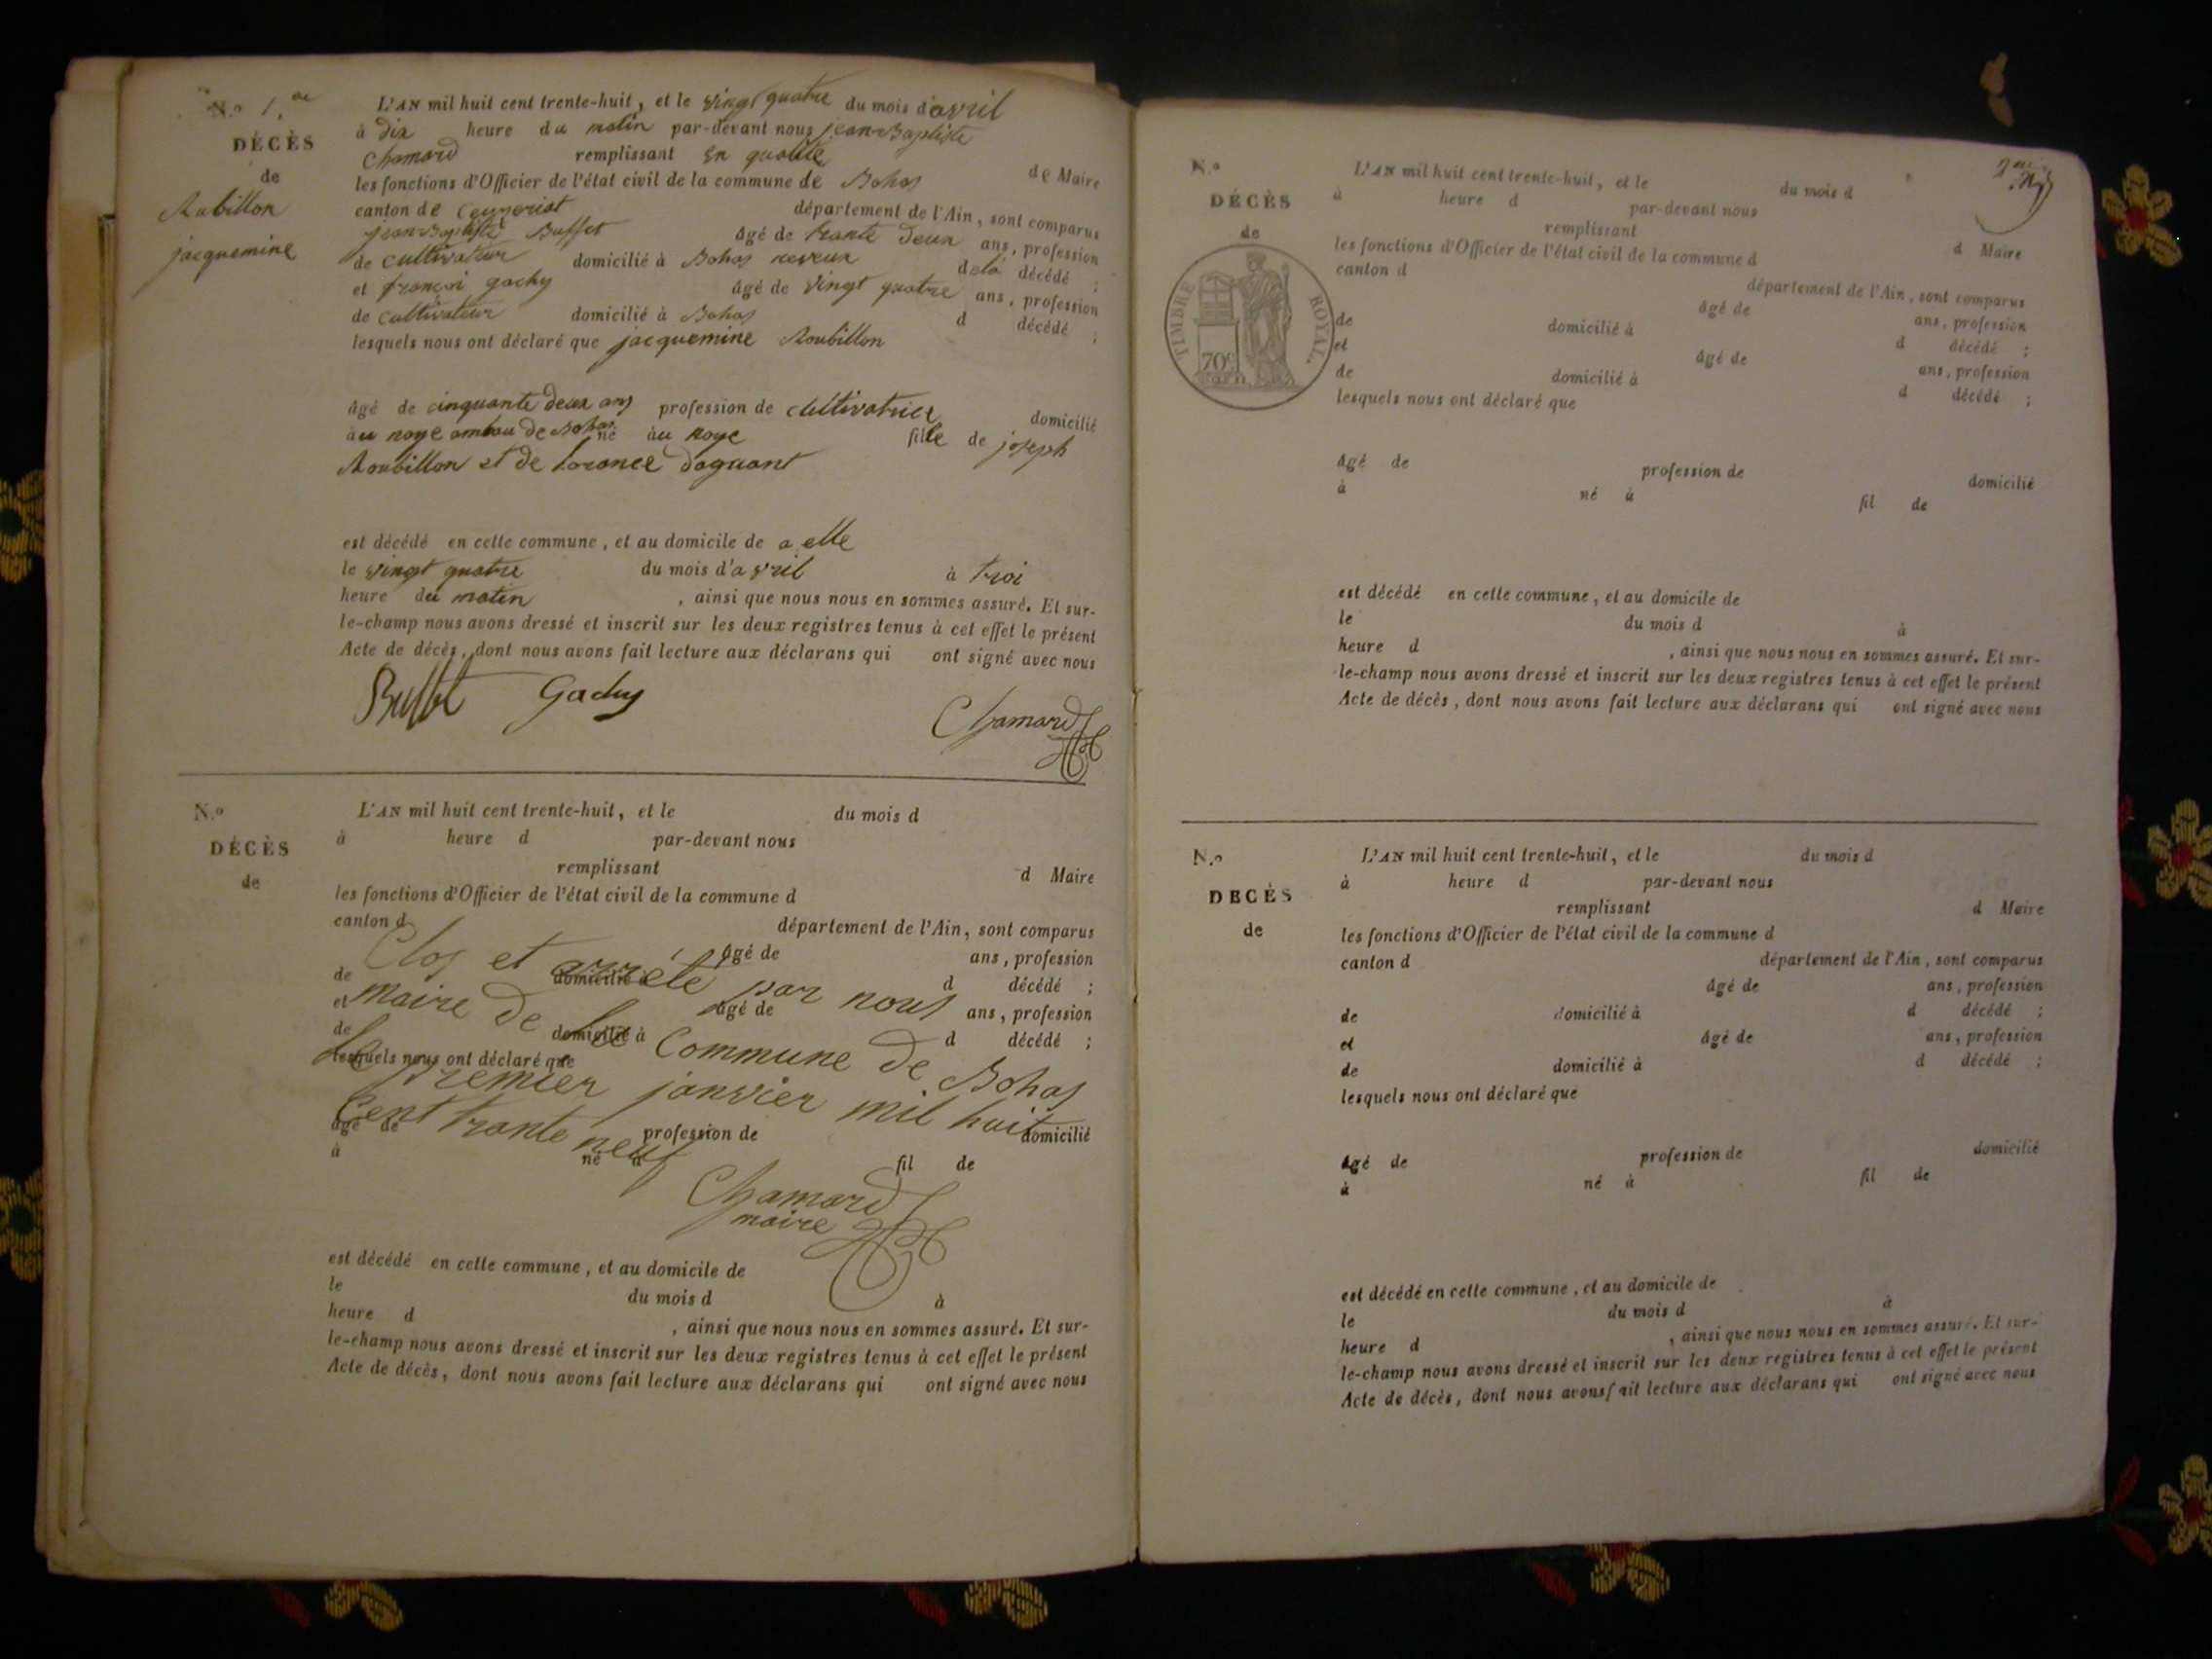 N.o 1.
L'AN mil huit cent trente-huit, et le vingt quatre du mois d'avril
DÉCÈS
de
Rubillon
jacquemine
à dix heure du matin par-devant nous jean Baptiste
Chamard remplissant en qualité de Maire
les fonctions d'Officier de l'état civil de la commune de Bohas
canton de Ceyzeriat département de l'Ain, sont comparus
jean Baptiste Buffet âgé de trante deux ans, profession
de cultivateur domicilié à Bohas neveux de la décédé ;
et françoi gachy âgé de vingt quatre ans, profession
de cultivateur domicilié à Bohas d décédé ;
lesquels nous ont déclaré que jacquemine Roubillon
âgé de cinquante deux ans profession de cultivatrice domicilié
au noye ambau de Bohas né au noye fille de joseph
Roubillon et de lorance daguant
est décédé en cette commune, et au domicile de a elle
le vingt quatre du mois d'avril à troi
heure du matin, ainsi que nous nous en sommes assuré. Et sur-
le-champ nous avons dressé et inscrit sur les deux registres tenus à cet effet le présent
Acte de décès, dont nous avons fait lecture aux déclarans qui ont signé avec nous
Buffet Gachy Chamard
N.o
DÉCÈS
de
L'AN mil huit cent trente-huit, et le du mois d
à heure d par-devant nous
remplissant d Maire
les fonctions d'Officier de l'état civil de la commune d
canton d département de l'Ain, sont comparus
âgé de ans, profession
de domicilié à d décédé ;
et âgé de ans, profession
de domicilié à d décédé ;
lesquels nous ont déclaré que
âgé de profession de domicilié
à né à fil de
Clos et arrété par nous
maire de la Commune de Bohas
le premier janvier mil huit
Cent trante neuf
Chamard
maire
est décédé en cette commune, et au domicile de
le du mois d à
heure d , ainsi que nous nous en sommes assuré. Et sur-
le-champ nous avons dressé et inscrit sur les deux registres tenus à cet effet le présent
Acte de décès, dont nous avons fait lecture aux déclarans qui ont signé avec nous
N.o
DÉCÈS
de
TIMBRE ROYAL.
70c
L'AN mil huit cent trente-huit, et le du mois d
à heure d par-devant nous
remplissant d Maire
les fonctions d'Officier de l'état civil de la commune d
canton d département de l'Ain, sont comparus
âgé de ans, profession
de domicilié à d décédé ;
et âgé de ans, profession
de domicilié à d décédé ;
lesquels nous ont déclaré que
âgé de profession de domicilié
à né à fil de
est décédé en cette commune, et au domicile de
le du mois d à
heure d , ainsi que nous nous en sommes assuré. Et sur-
le-champ nous avons dressé et inscrit sur les deux registres tenus à cet effet le présent
Acte de décès, dont nous avons fait lecture aux déclarans qui ont signé avec nous
N.o
DECÈS
de
L'AN mil huit cent trente-huit, et le du mois d
à heure d par-devant nous
remplissant d Maire
les fonctions d'Officier de l'état civil de la commune d
canton d département de l'Ain, sont comparus
âgé de ans, profession
de domicilié à d décédé ;
et âgé de ans, profession
de domicilié à d décédé ;
lesquels nous ont déclaré que
âgé de profession de domicilié
à né à fil de
est décédé en cette commune, et au domicile de
le du mois d à
heure d , ainsi que nous nous en sommes assuré. Et sur-
le-champ nous avons dressé et inscrit sur les deux registres tenus à cet effet le présent
Acte de décès, dont nous avons fait lecture aux déclarans qui ont signé avec nous